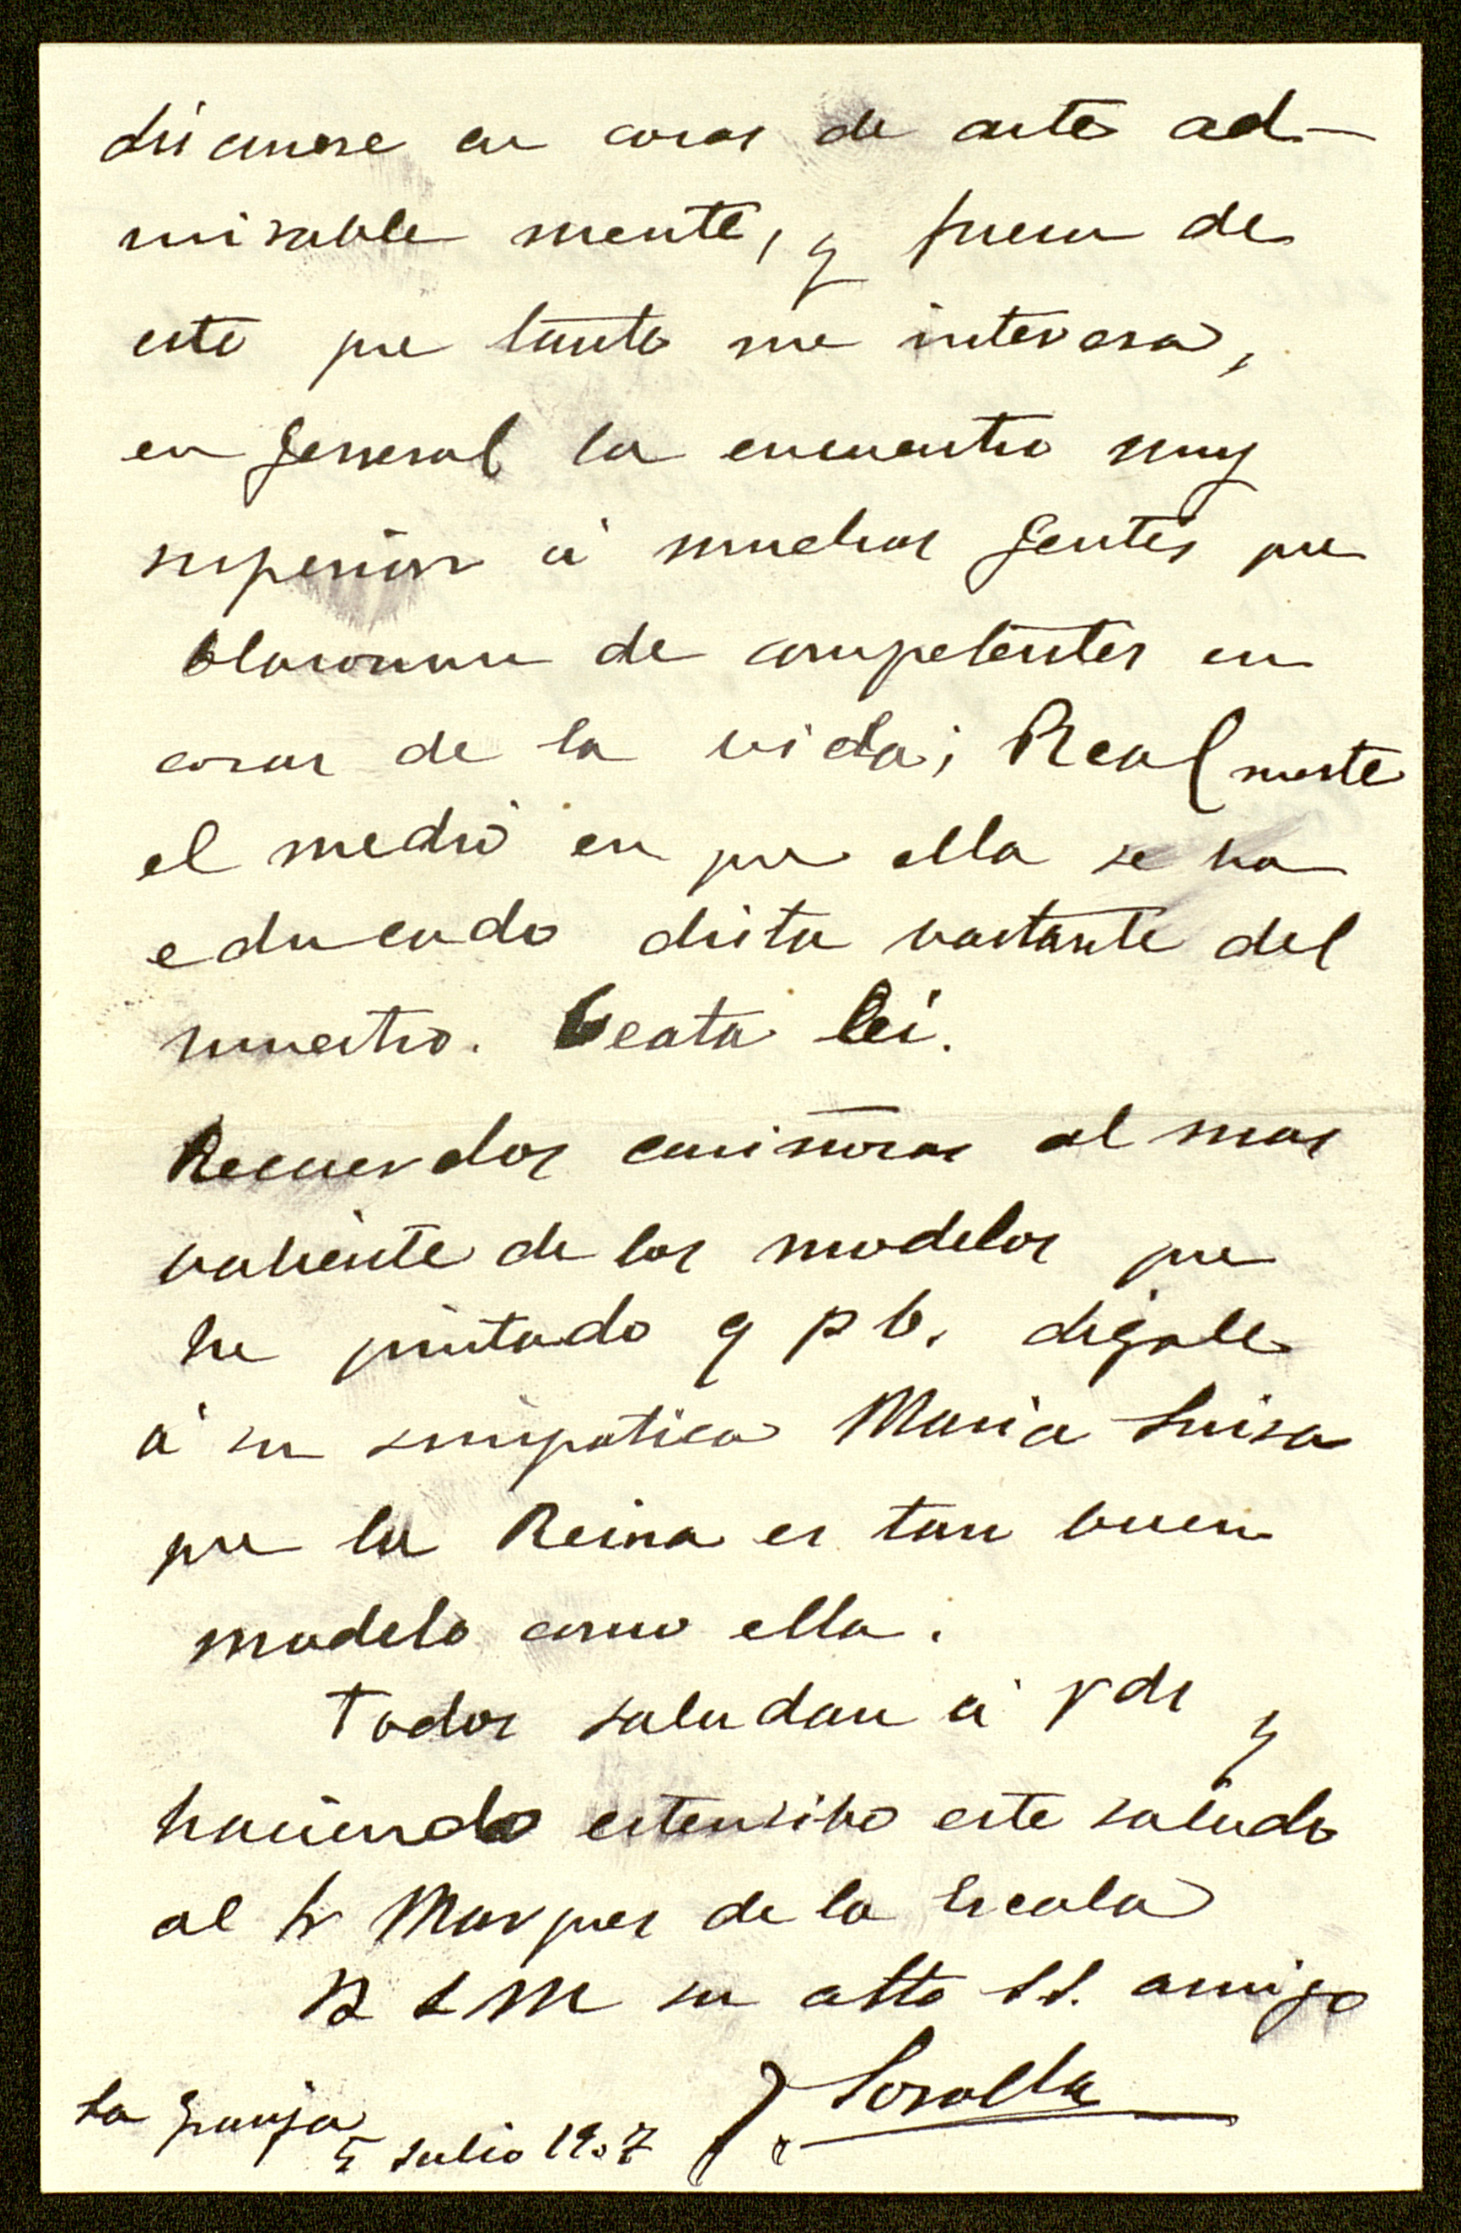 discurre en cosas de arte ad-
mirable mente, y fuera de
esto que tanto me interesa,
en general la encuentro muy
superior á muchas gentes que
blasonan de competentes en
cosas de la vida; Realmente
el medio en que ella se ha
educado dista vastante del
nuestro. Beata lei.
Recuerdos cariñosos al mas
valiente de los modelos que
he pintado q p b. digale
á su simpatica Maria Luisa
que la Reina es tan buen
modelo como ella.
Todos saludan á Vds y
haciendo estensivo este saludo
al Sr Marques de la Escala
B S M su atto S.S. amigo
J Sorolla
La Granja
5 Julio 1907